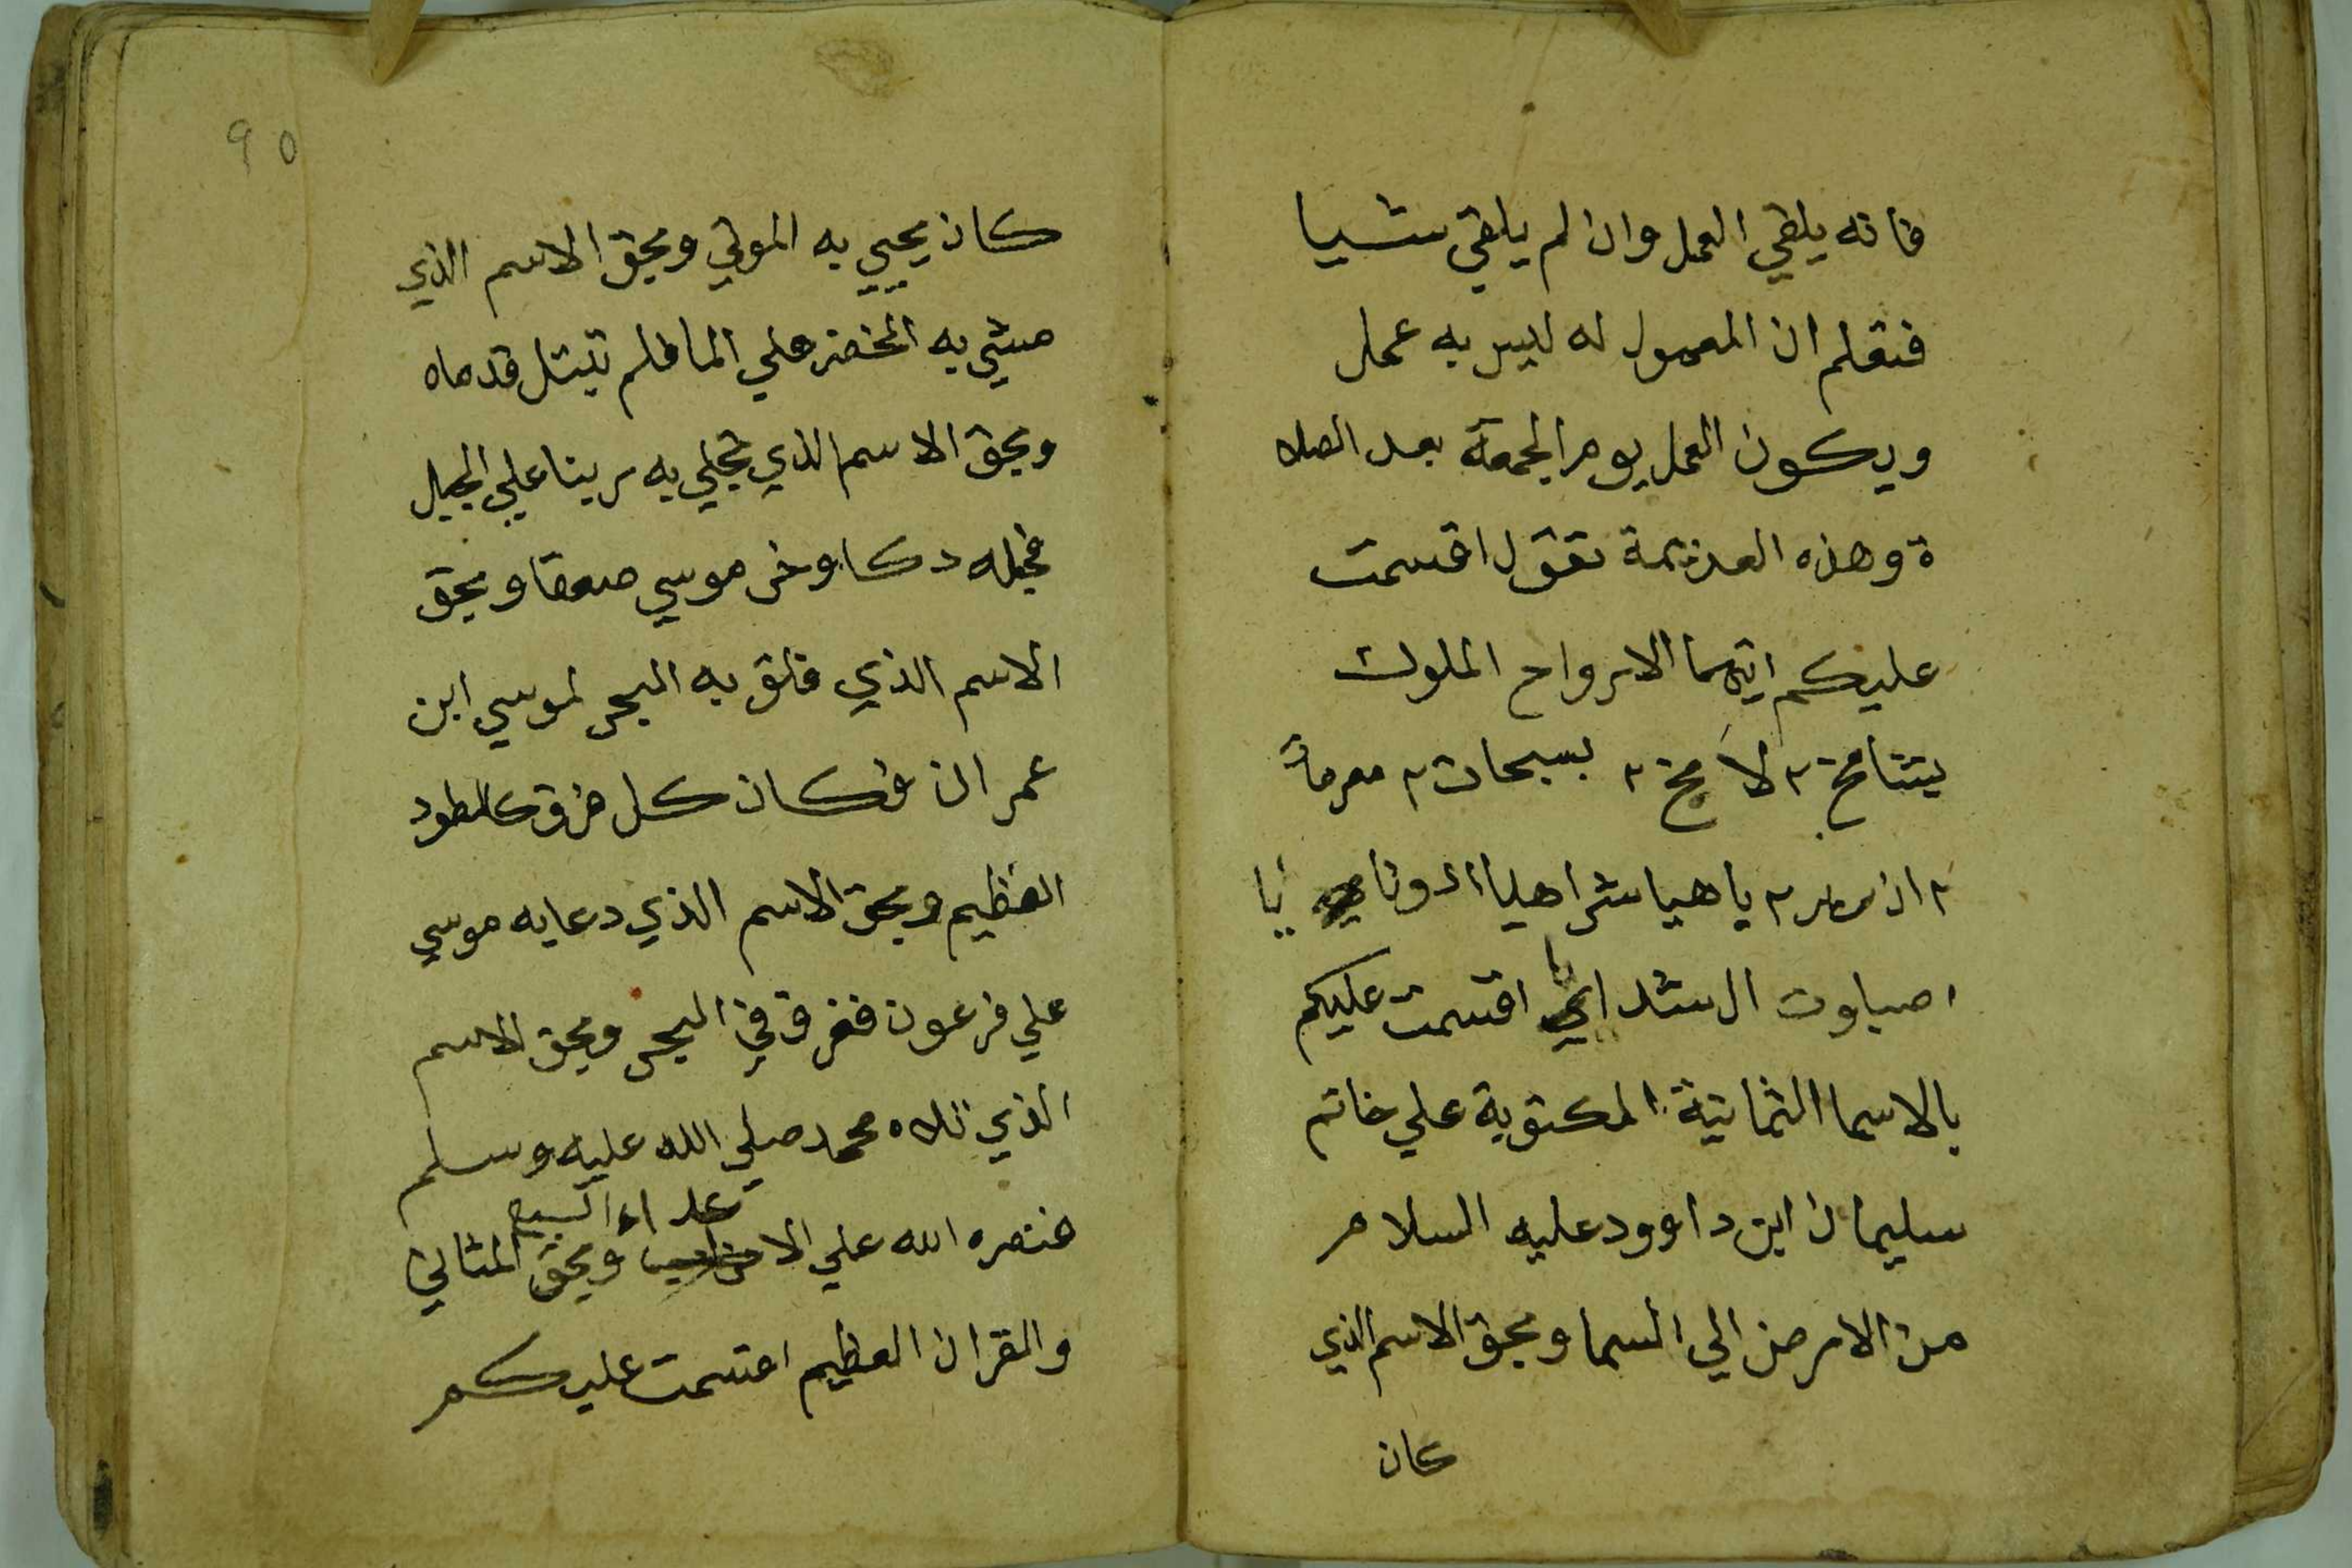 فانه يلقي العمل وان لم يلقي شيا
فتعلم ان المعمول له ليس به عمل
ويكون العمل يوم الجمعة بعد الصلا
ة وهذه العزيمة تقول اقسمت
عليكم ايتها الارواح الملوك
بسبحات ٢
٢ ياهيا شراهيا ادوناي
اصباوت ال شداي اقسمت عليكم
بالاسما الثمانية المكتوبة علي خاتم
سليمان ابن داوود عليه السلام
من الارض الي السما وبحق الاسم الذي
كان
90
كان يحيي به الموتي وبحق الاسم الذي
مشي به الخضر علي الما فلم تبتل قدماه
وبحق الاسم الذي تجلي به ربنا علي الجبل
فجعله دكا وخر موسي صعقا وبحق
الاسم الذي فلق به البحر لموسي ابن
عمران فكان كل فرق كالطود
العظيم وبحق الاسم الذي دعا به موسي
علي فرعون فغرق في البحر وبحق الاسم
الذي تلاه محمد صلي الله عليه وسلم
فنصره الله علي الاعداء وبحق السبع المثاني
والقران العظيم اقسمت عليكم